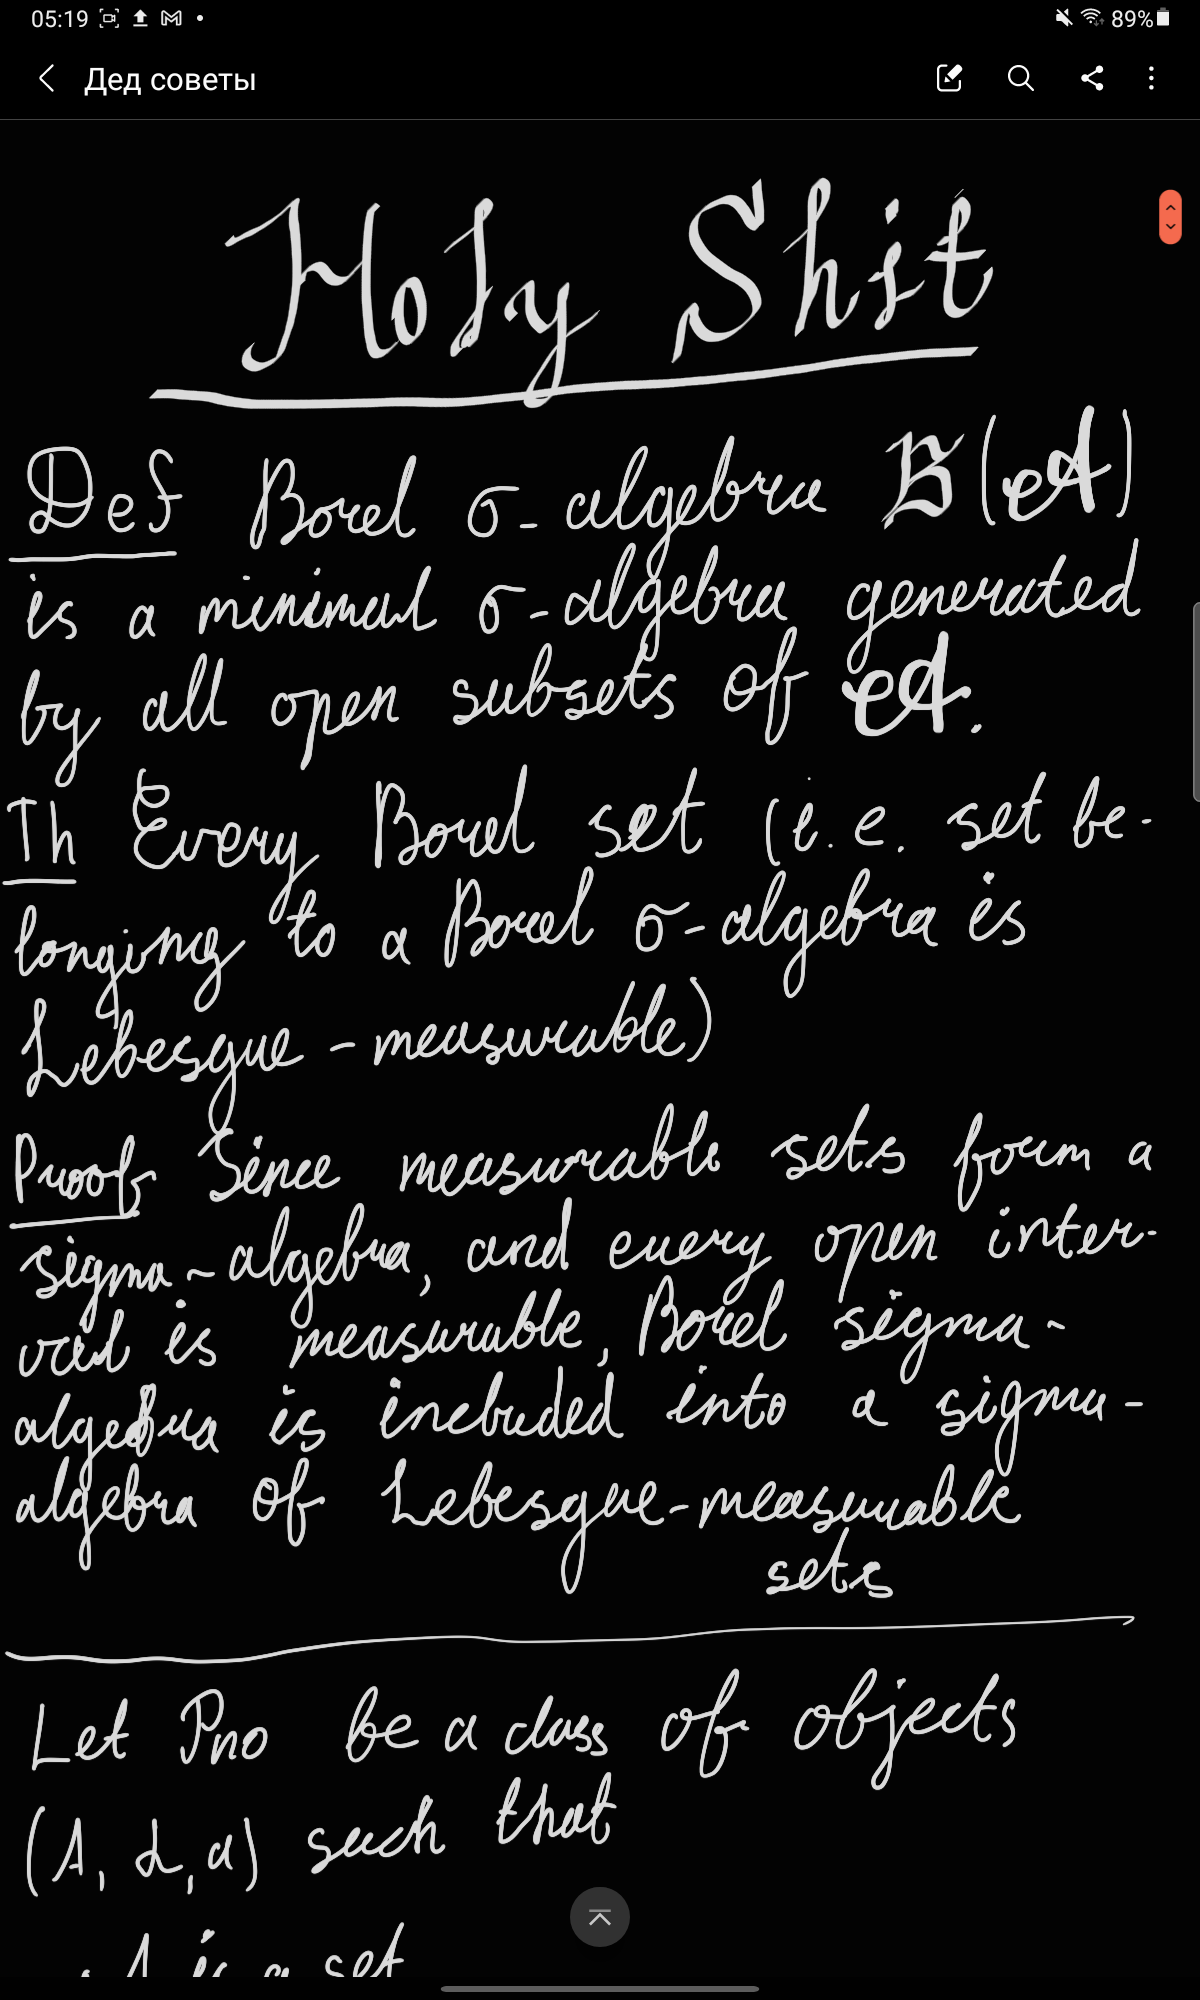 05:19 89%
Дед советы
Holy Shit
Def Borel σ-algebra 𝔅(𝒜)
is a minimal σ-algebra generated
by all open subsets of 𝒜.
Th Every Borel set (i.e. set be-
longing to a Borel σ-algebra is
Lebesgue-measurable)
Proof Since measurable sets form a
sigma-algebra, and every open inter-
val is measurable, Borel sigma-
algebra is included into a sigma-
algebra of Lebesgue-measurable
sets
Let Pno be a class of objects
(A, α, a) such that
• A is a set